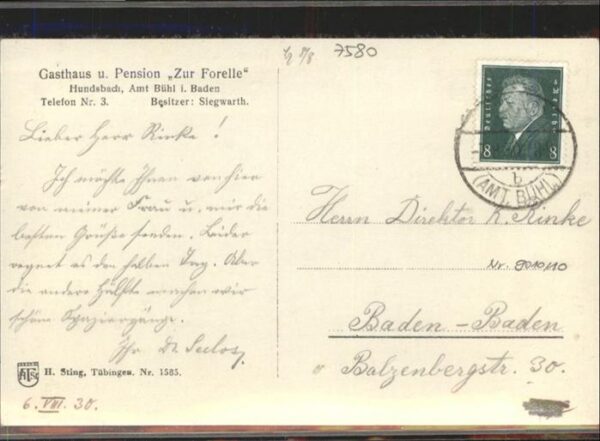 ½ 7/8 7580
Gasthaus u. Pension „Zur Forelle“
Hundsbach, Amt Bühl i. Baden
Telefon Nr. 3. Besitzer: Siegwarth.
Lieber Herr Rinke!
Ich möchte Ihnen von hier
von meiner Frau u. mir die
besten Grüße senden. Leider
regnet es den halben Tag. Aber
die andere Hälfte machen wir
schöne Spaziergänge.
Ihr Dr.
H. Sting, Tübingen. Nr. 1585.
6. VIII. 30.
Deutsches Reich
8 8
b
(AMT BÜHL)
Herrn Direktor K. Rinke
Nr. 9010/10
Baden-Baden
Balzenbergstr. 30.